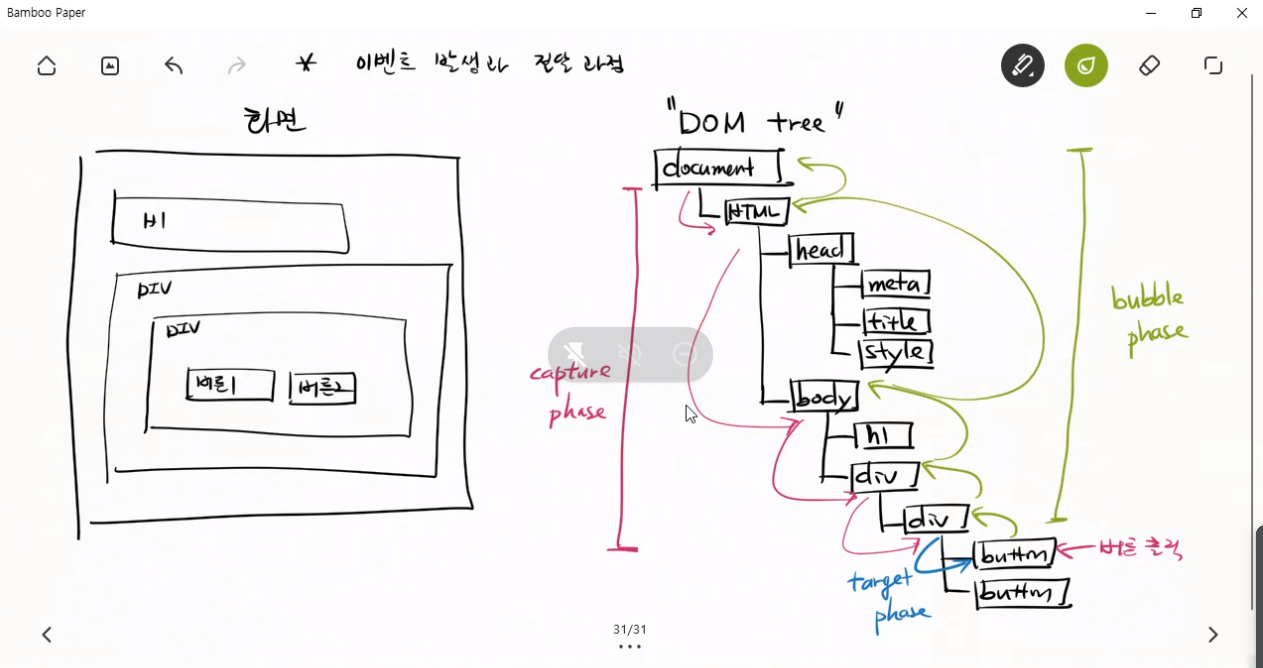 Bamboo Paper
* 이벤트 발생과 전달 과정
화면
"DOM tree"
document
HTML
head
meta
title
style
body
h1
div
div
button
button
capture
phase
bubble
phase
target
phase
버튼 클릭
DIV
DIV
버튼1
버튼2
31/31